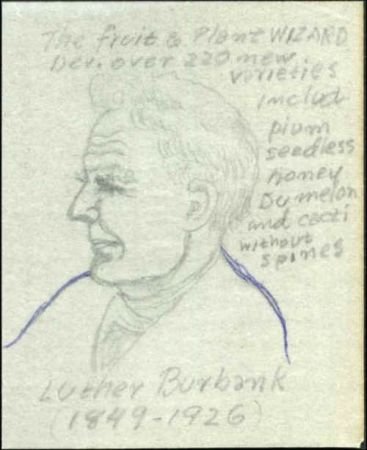 The fruit & Plant WIZARD
Dev. over 220 new
varieties
includ
plum
seedless
honey
Du melon
and cacti
without
spines
Luther Burbank
(1849-1926)